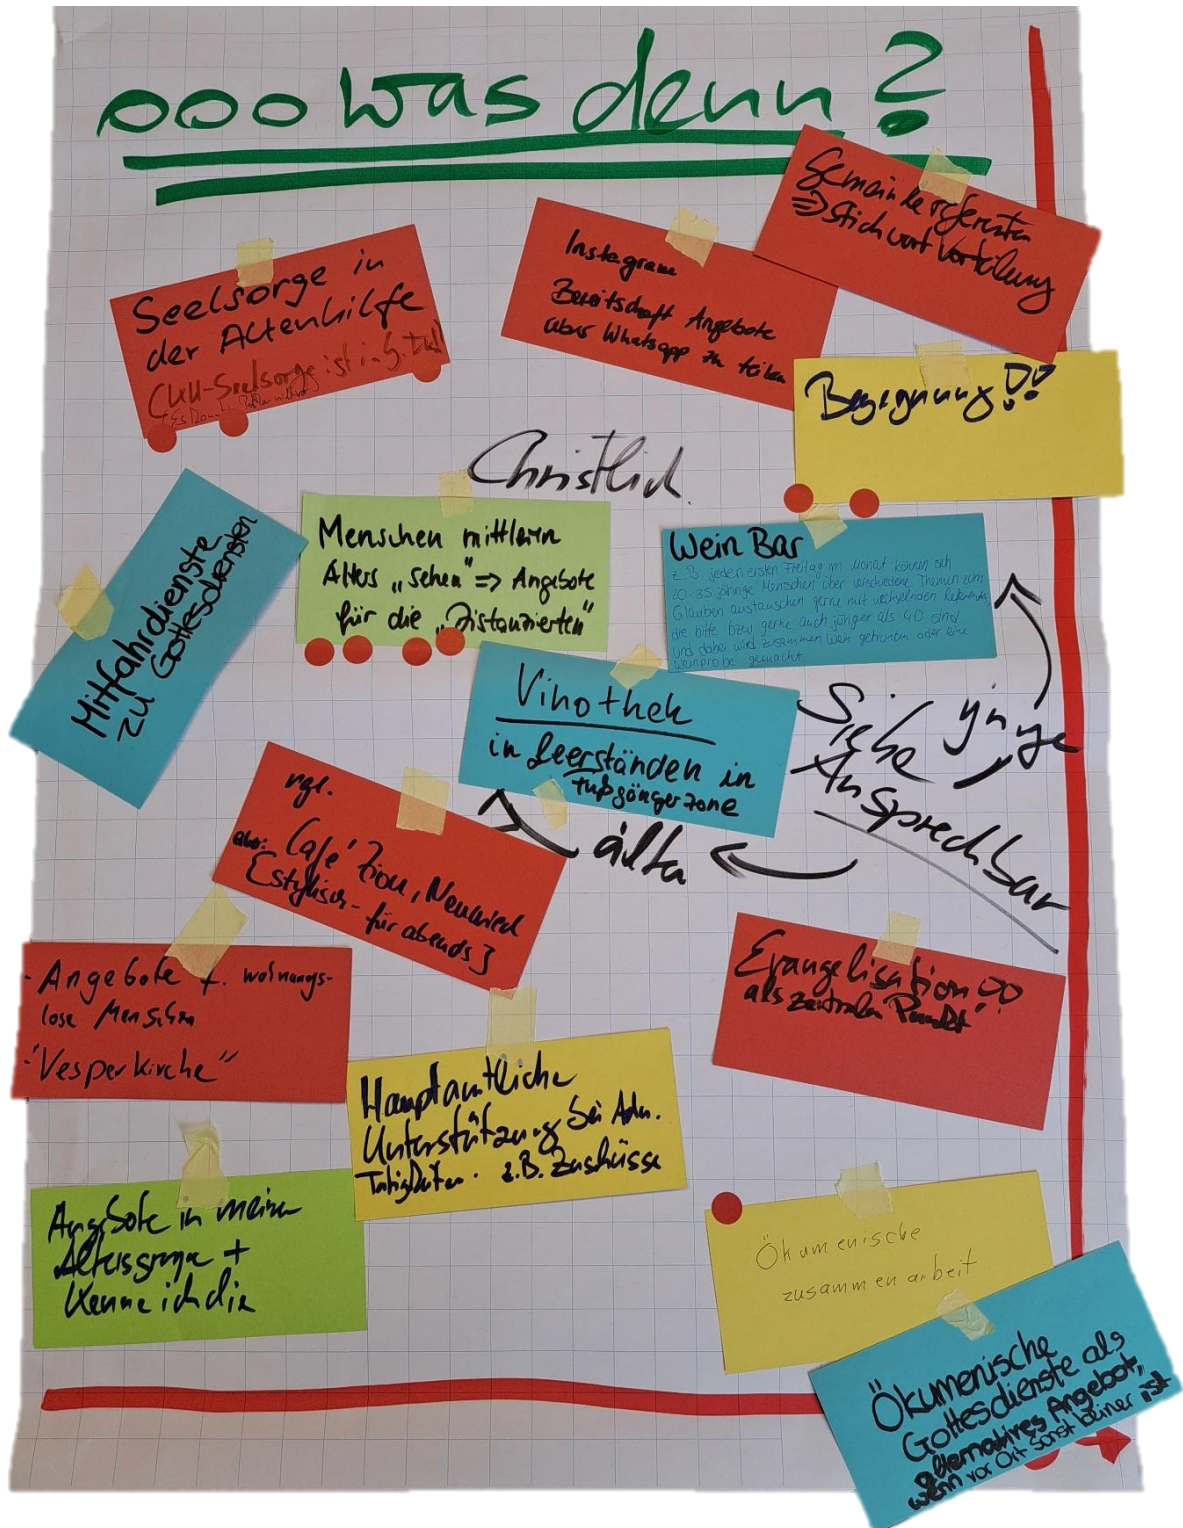 ooo was denn?
Gemeindereferenten
⇒ Stichwort Verteilung
Instagram
Bereitschaft Angebote
über Whatsapp zu teilen
Seelsorge in
der Altenhilfe
(KH-Seelsorge ist in
Begegnung!!
Christlich
Mitfahrdienste
zu Gottesdiensten
Menschen mittleren
Alters „sehen" => Angebote
für die „Distanzierten"
Wein Bar
z B jeden ersten Freitag im Monat können sich
20-35 jährige Menschen über verschiedene Themen zum
Glauben austauschen gerne mit wechselnden Referenten,
die bitte bzw gerne auch jünger als 40 sind
und dabei wird zusammen Wein getrunken oder eine
weinprobe gemacht
Vinothek
in Leerständen in
Fußgängerzone
jünge
Siche
Ansprechbar
älter
vgl.
Café Zion, Neuwied
[stylisch - für abends]
- Angebote f. wohnungs-
lose Menschen
- "Vesperkirche"
Evangelisation!!
als zentraler Punkt
Hauptamtliche
Unterstützung bei Adm.
Tätigkeiten z.B. Zuschüsse
Angebote in meiner
Altersgruppe +
Kenne ich die
Ökumenische
zusammenarbeit
Ökumenische
Gottesdienste als
alternatives Angebot,
wenn vor Ort sonst keiner ist